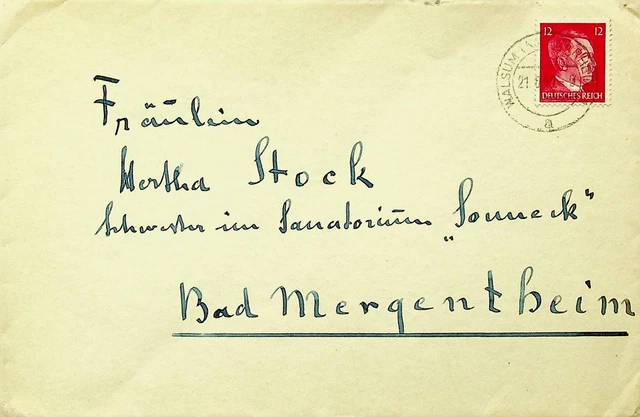 12 12
DEUTSCHES REICH
WALSUM
21.
a
Fräulein
Hertha Stock
Schwester im Sanatorium „Sonneck“
Bad Mergentheim